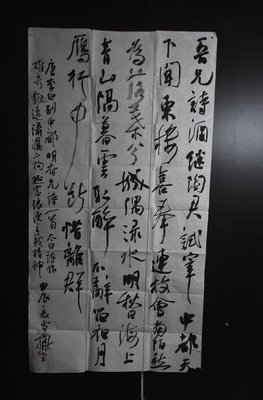 吾兄詩酒繼陶君試宰中都天
下聞東樓喜奉連枝會南陌愁
為落葉分城隅淥水明秋日海上
青山隔暮雲取醉不辭留夜月
雁行中斷惜離群
唐李白別中都明府兄一首太白詩作
雄奇飄逸瀟灑不拘精神
甲辰